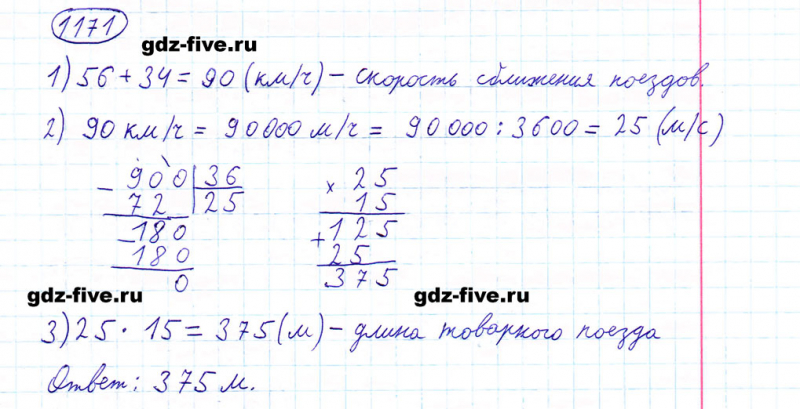 1171
gdz-five.ru
1) 56 + 34 = 90 (км/ч) – скорость сближения поездов.
2) 90 км/ч = 90000 м/ч = 90000 : 3600 = 25 (м/с)
900 | 36
– 72 | 25
– 180
180
0
× 25
15
+ 125
25
375
gdz-five.ru
gdz-five.ru
3) 25 · 15 = 375 (м) – длина товарного поезда
Ответ: 375 м.